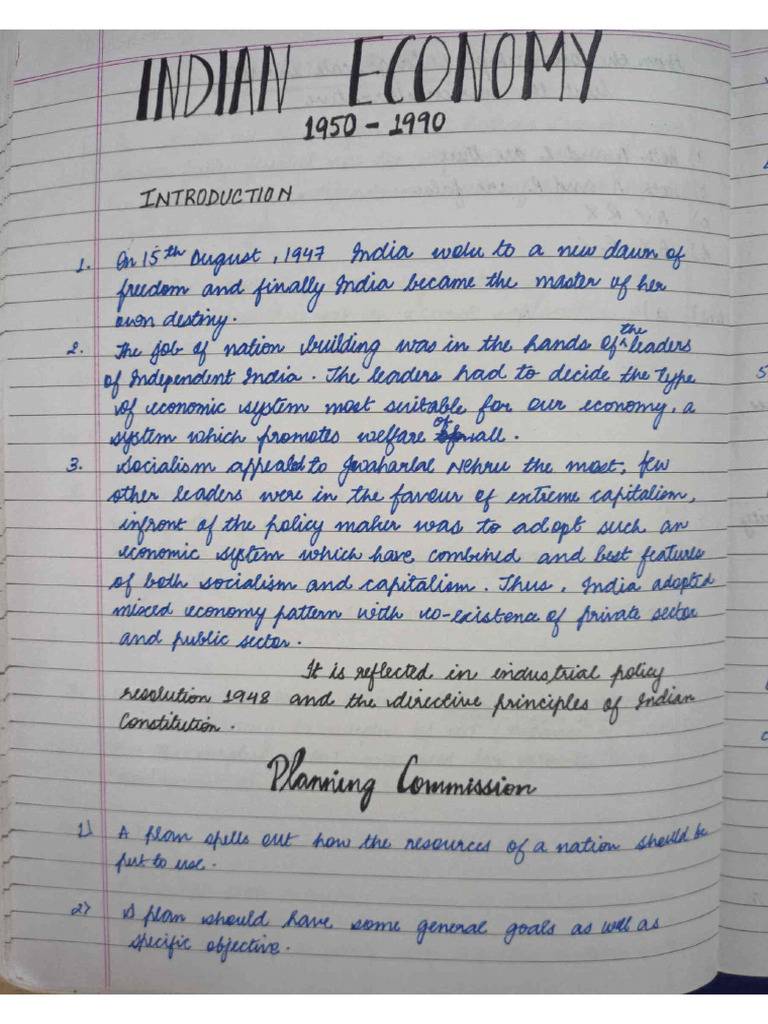 INDIAN ECONOMY
1950 - 1990
INTRODUCTION
1. On 15th August, 1947 India woke to a new dawn of
freedom and finally India became the master of her
own destiny.
2. The job of nation building was in the hands of the leaders
of Independent India. The leaders had to decide the type
of economic system most suitable for our economy, a
system which promotes welfare of all.
3. Socialism appealed to Jwaharlal Nehru the most, few
other leaders were in the favour of extreme capitalism,
infront of the policy maker was to adopt such an
economic system which have combined and best features
of both socialism and capitalism. Thus, India adopted
mixed economy pattern with co-existence of private sector
and public sector.
It is reflected in industrial policy
resolution 1948 and the directive principles of Indian
Constitution.
Planning Commission
1) A plan spells out how the resources of a nation should be
put to use.
2) A plan should have some general goals as well as
specific objective.